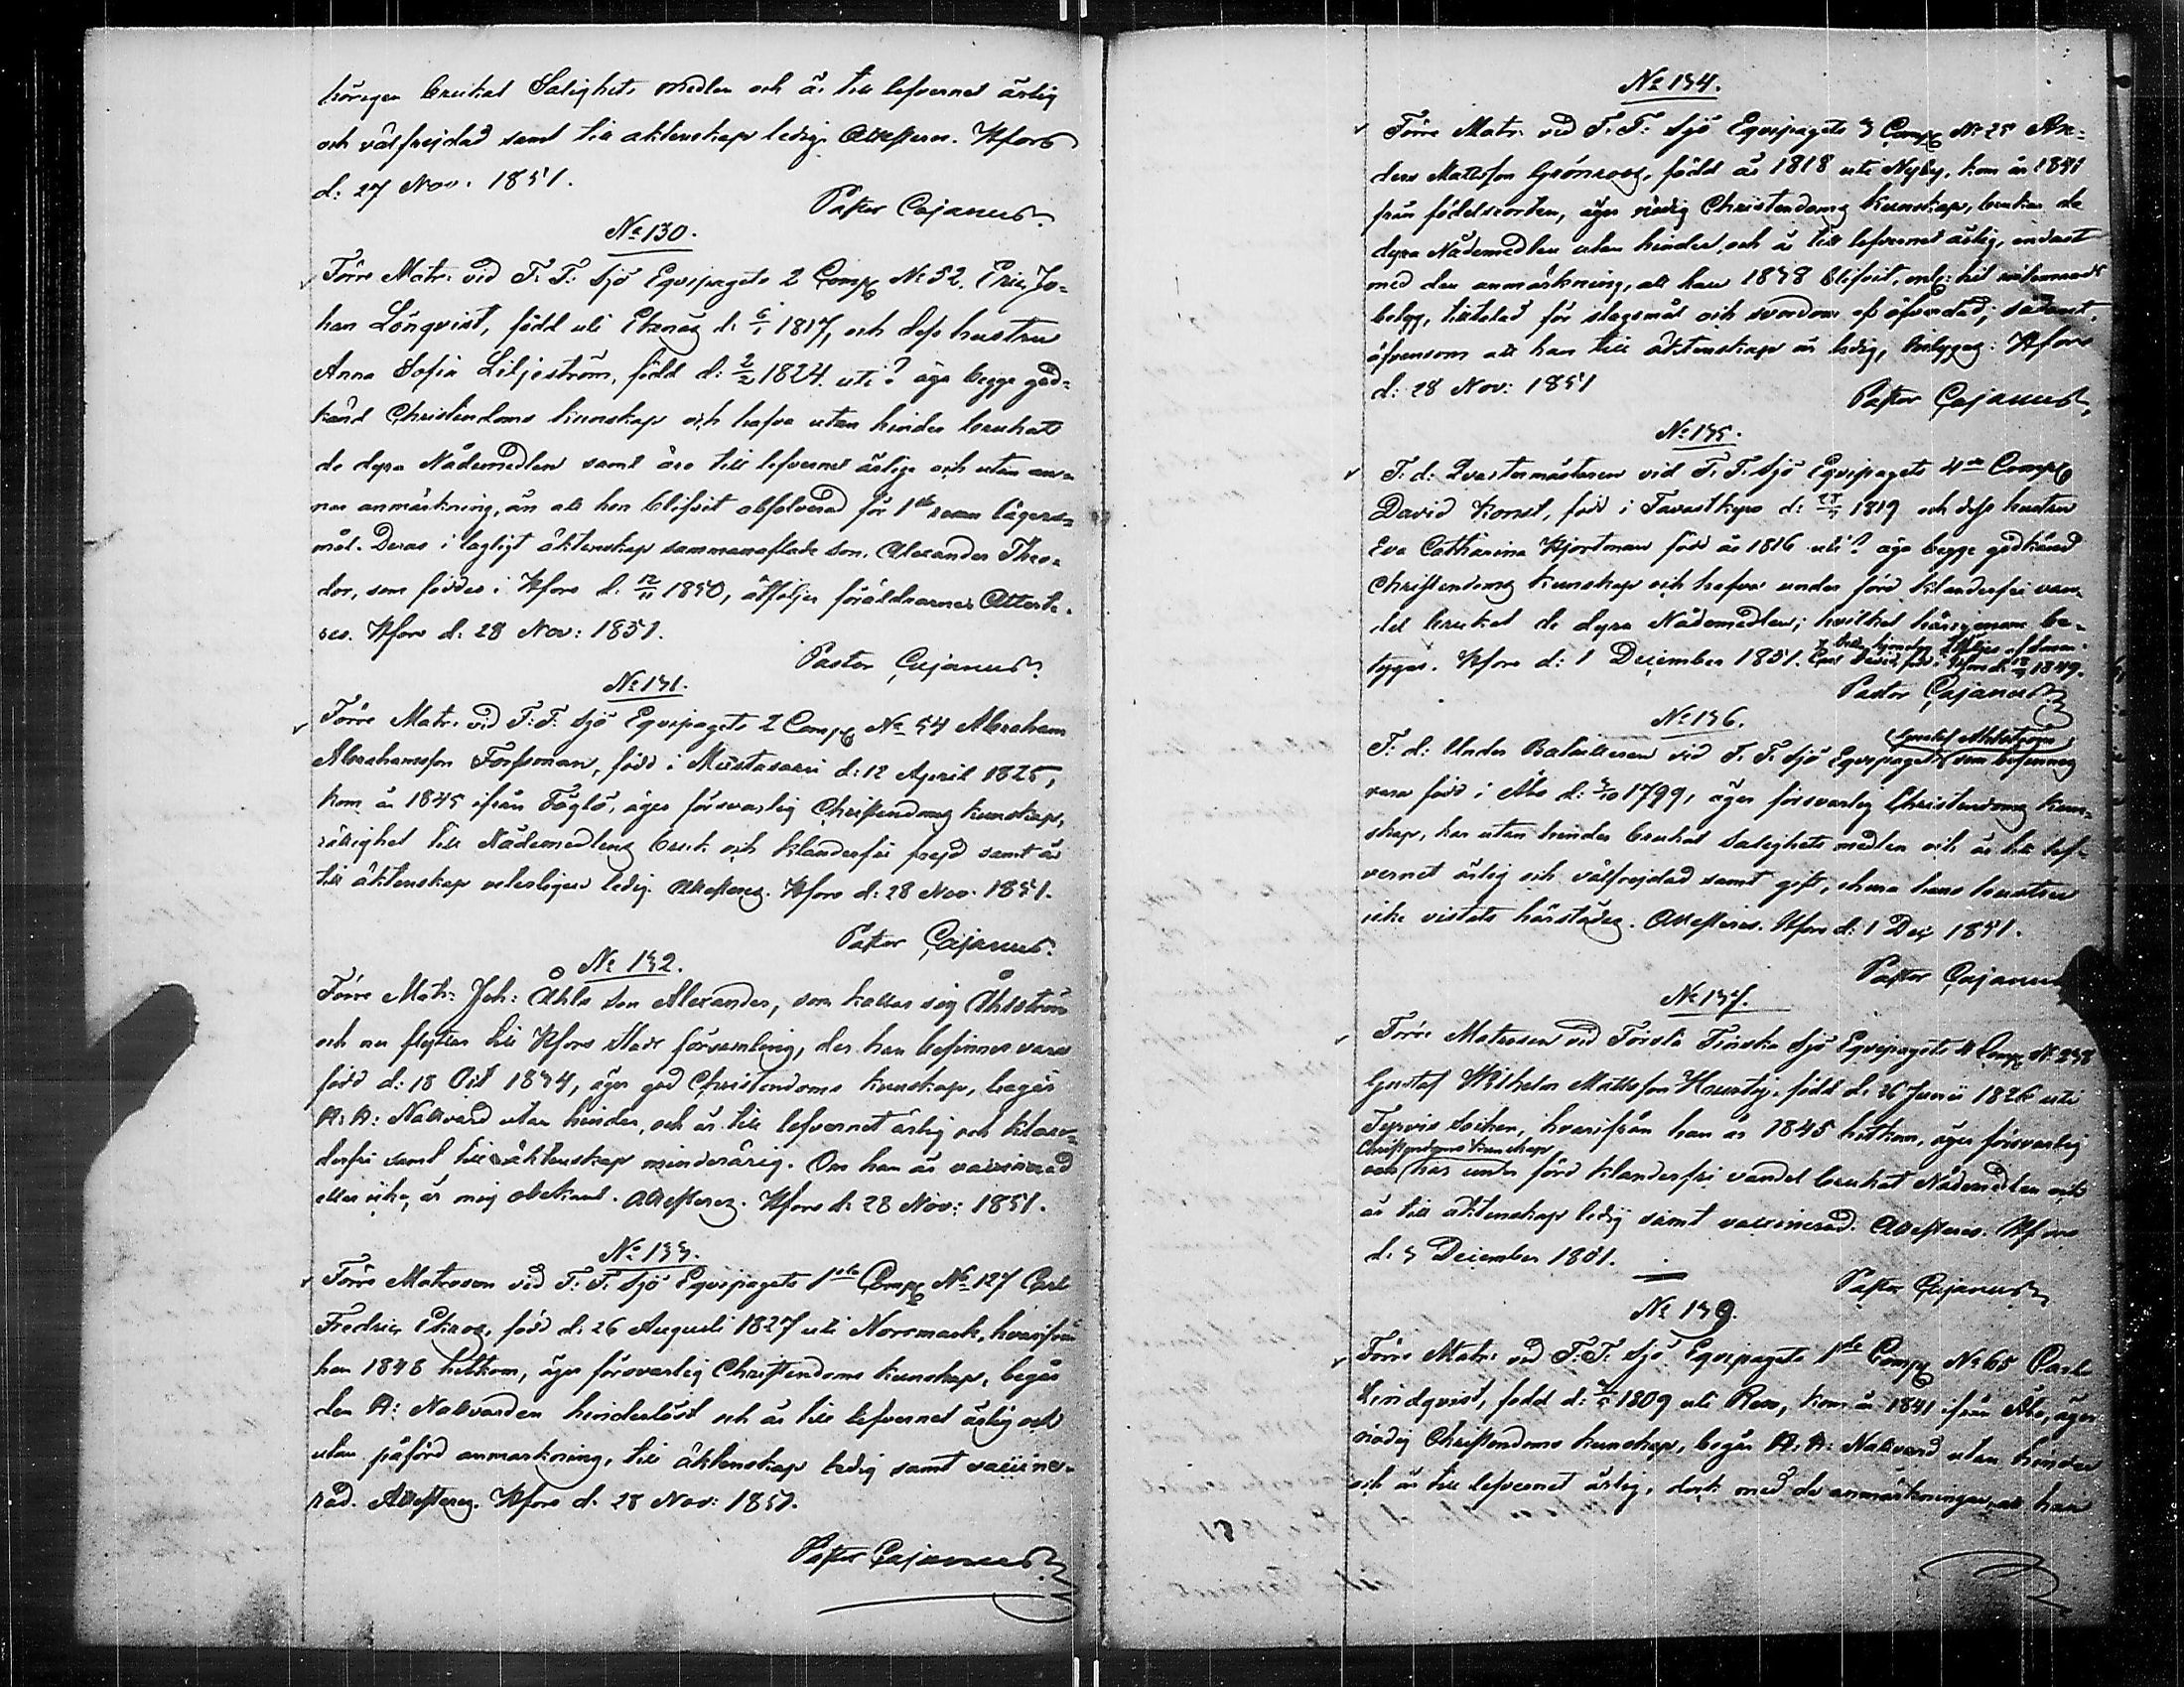 hörigen brukat Salighets medlen och är till lefvernet ärlig
och välfrejdad samt till äktenskap ledig. Attesteras. Hfors
d: 27 Nov. 1851.
Pastor Cajanus.
No 130.
Förre Matr: vid F. F. Sjö Eqvipagets 2 Comp No 52. Eric Jo-
han Lönqvist, född uti Ekenäs d: 6/1 1817, och dess hustru
Anna Sofia Liljeström, född d: 2/2 1824 uti? äga begge god-
känd Christendoms kunskap och hafva utan hinder brukat
de dyra Nådemedlen samt äro till lefvernet ärlige och utan an-
nan anmärkning, än att hon blifvit absolverad för 1sta resan lägers-
mål. Deras i lagligt äktenskap sammanaflade son, Alexander Theo-
dor, som föddes i Hfors d. 12/11 1850, åtföljer föräldrarne. Atteste-
ras. Hfors d: 28 Nov: 1851.
Pastor Cajanus.
No 131.
Förre Matr: vid F. F. Sjö Eqvipagets 2 Comp No 54 Abraham
Abrahamsson Forssman, född i Mustasaari d: 12 April 1825,
kom år 1845 ifrån Föglö, äger försvarlig Christendoms kunskap,
rättighet till Nådemedlens bruk och klanderfri frejd samt är
till äktenskap veterligen ledig. Attesteras. Hfors d: 28 Nov. 1851.
Pastor Cajanus.
No 132.
Förre Matr: Joh: Åhls son Alexander, som kallar sig Åhlström
och nu flyttar till Hfors stads församling, der han befinnes vara
född d: 18 Oct 1834, äger god Christendoms kunskap, begår
H: H: Nattvard utan hinder, och är till lefvernet ärlig och klan-
derfri samt till äktenskap minderårig. Om han är vaccinerad
eller icke, är mig obekant. Attesteras. Hfors d: 28 Nov: 1851.
No 133.
Förre Matrosen vid F. F. Sjö Eqvipagets 1sta Comp No 127 Carl
Fredric Ekroos, född d: 26 Augusti 1827 uti Norrmark, hvarifrån
han 1848 hitkom, äger försvarlig Christendoms kunskap, begår
den H: Nattvarden hinderlöst och är till lefvernet ärlig och
utan påförd anmärkning, till äktenskap ledig samt vaccine-
rad. Attesteras. Hfors d. 28 Nov: 1851.
Pastor Cajanus.
No 134.
Förre Matr: vid F. F: Sjö Eqvipagets 3 Comp No 25 An-
ders Mattsson Grönroos, född år 1818 uti Nyby, kom år 1841
från födelseorten, äger nödig Christendoms kunskap, brukar de
dyra Nådemedlen utan hinder, och är till lefvernet ärlig, endast
med den anmärkning, att han 1838 blifvit, enl: hit
betyg, tilltalad för slagsmål och svordom ; sådant,
äfvensom att han till äktenskap är ledig, betygas: Hfors
d: 28 Nov: 1851
Pastor Cajanus.
No 135.
F. d: Qvartermästaren vid F. F. Sjö Eqvipagets 4de Comp
David Konst, född i Tavastkyro d: 1819 och dess hustru
Eva Catharina Hjortman född år 1816 uti? äga begge godkänd
Christendoms kunskap och hafva under förd klanderfri van-
del brukat de dyra Nådemedlen; hvilket härigenom be-
tygas. Hfors d: 1 December 1851.
David, född i Hfors d: 1849.
Pastor Cajanus
No 136.
Gustaf
F. d: Under vid F. F. Sjö Eqvipaget som befinnes
vara född i Åbo d: 3/10 1799, äger försvarlig Christendoms kun-
skap, har utan hinder brukat Salighets medlen och är till lef-
vernet ärlig och välfrejdad samt gift, ehuru hans hustru
icke vistats härstädes. Attesteras. Hfors d: 1 Dec 1851.
Pastor Cajanus
No 137.
Förre Matrosen vid Första Finska Sjö Eqvipagets 4 Comp No 238
Gustaf Wilhelm Mattsson född d. 26 Junii 1826 uti
Tyrvis Socken, hvarifrån han år 1845 hitkom, äger försvarlig
Christendoms kunskap
har under förd klanderfri vandel brukat Nådemedlen och
är till äktenskap ledig samt vaccinerad. Attesteras. Hfors
d. 3 December 1851.
Pastor Cajanus
No 139.
Förre Matr: vid F: F: Sjö Eqvipagets 1sta Comp No 65 Carl
Lindqvist, född d: 1809 uti , kom år 1841 ifrån Åbo, äger
nödig Christendoms kunskap, begår H. H: Nattvard utan hinder
och är till lefvernet ärlig, dock med de anmärkningar, att han